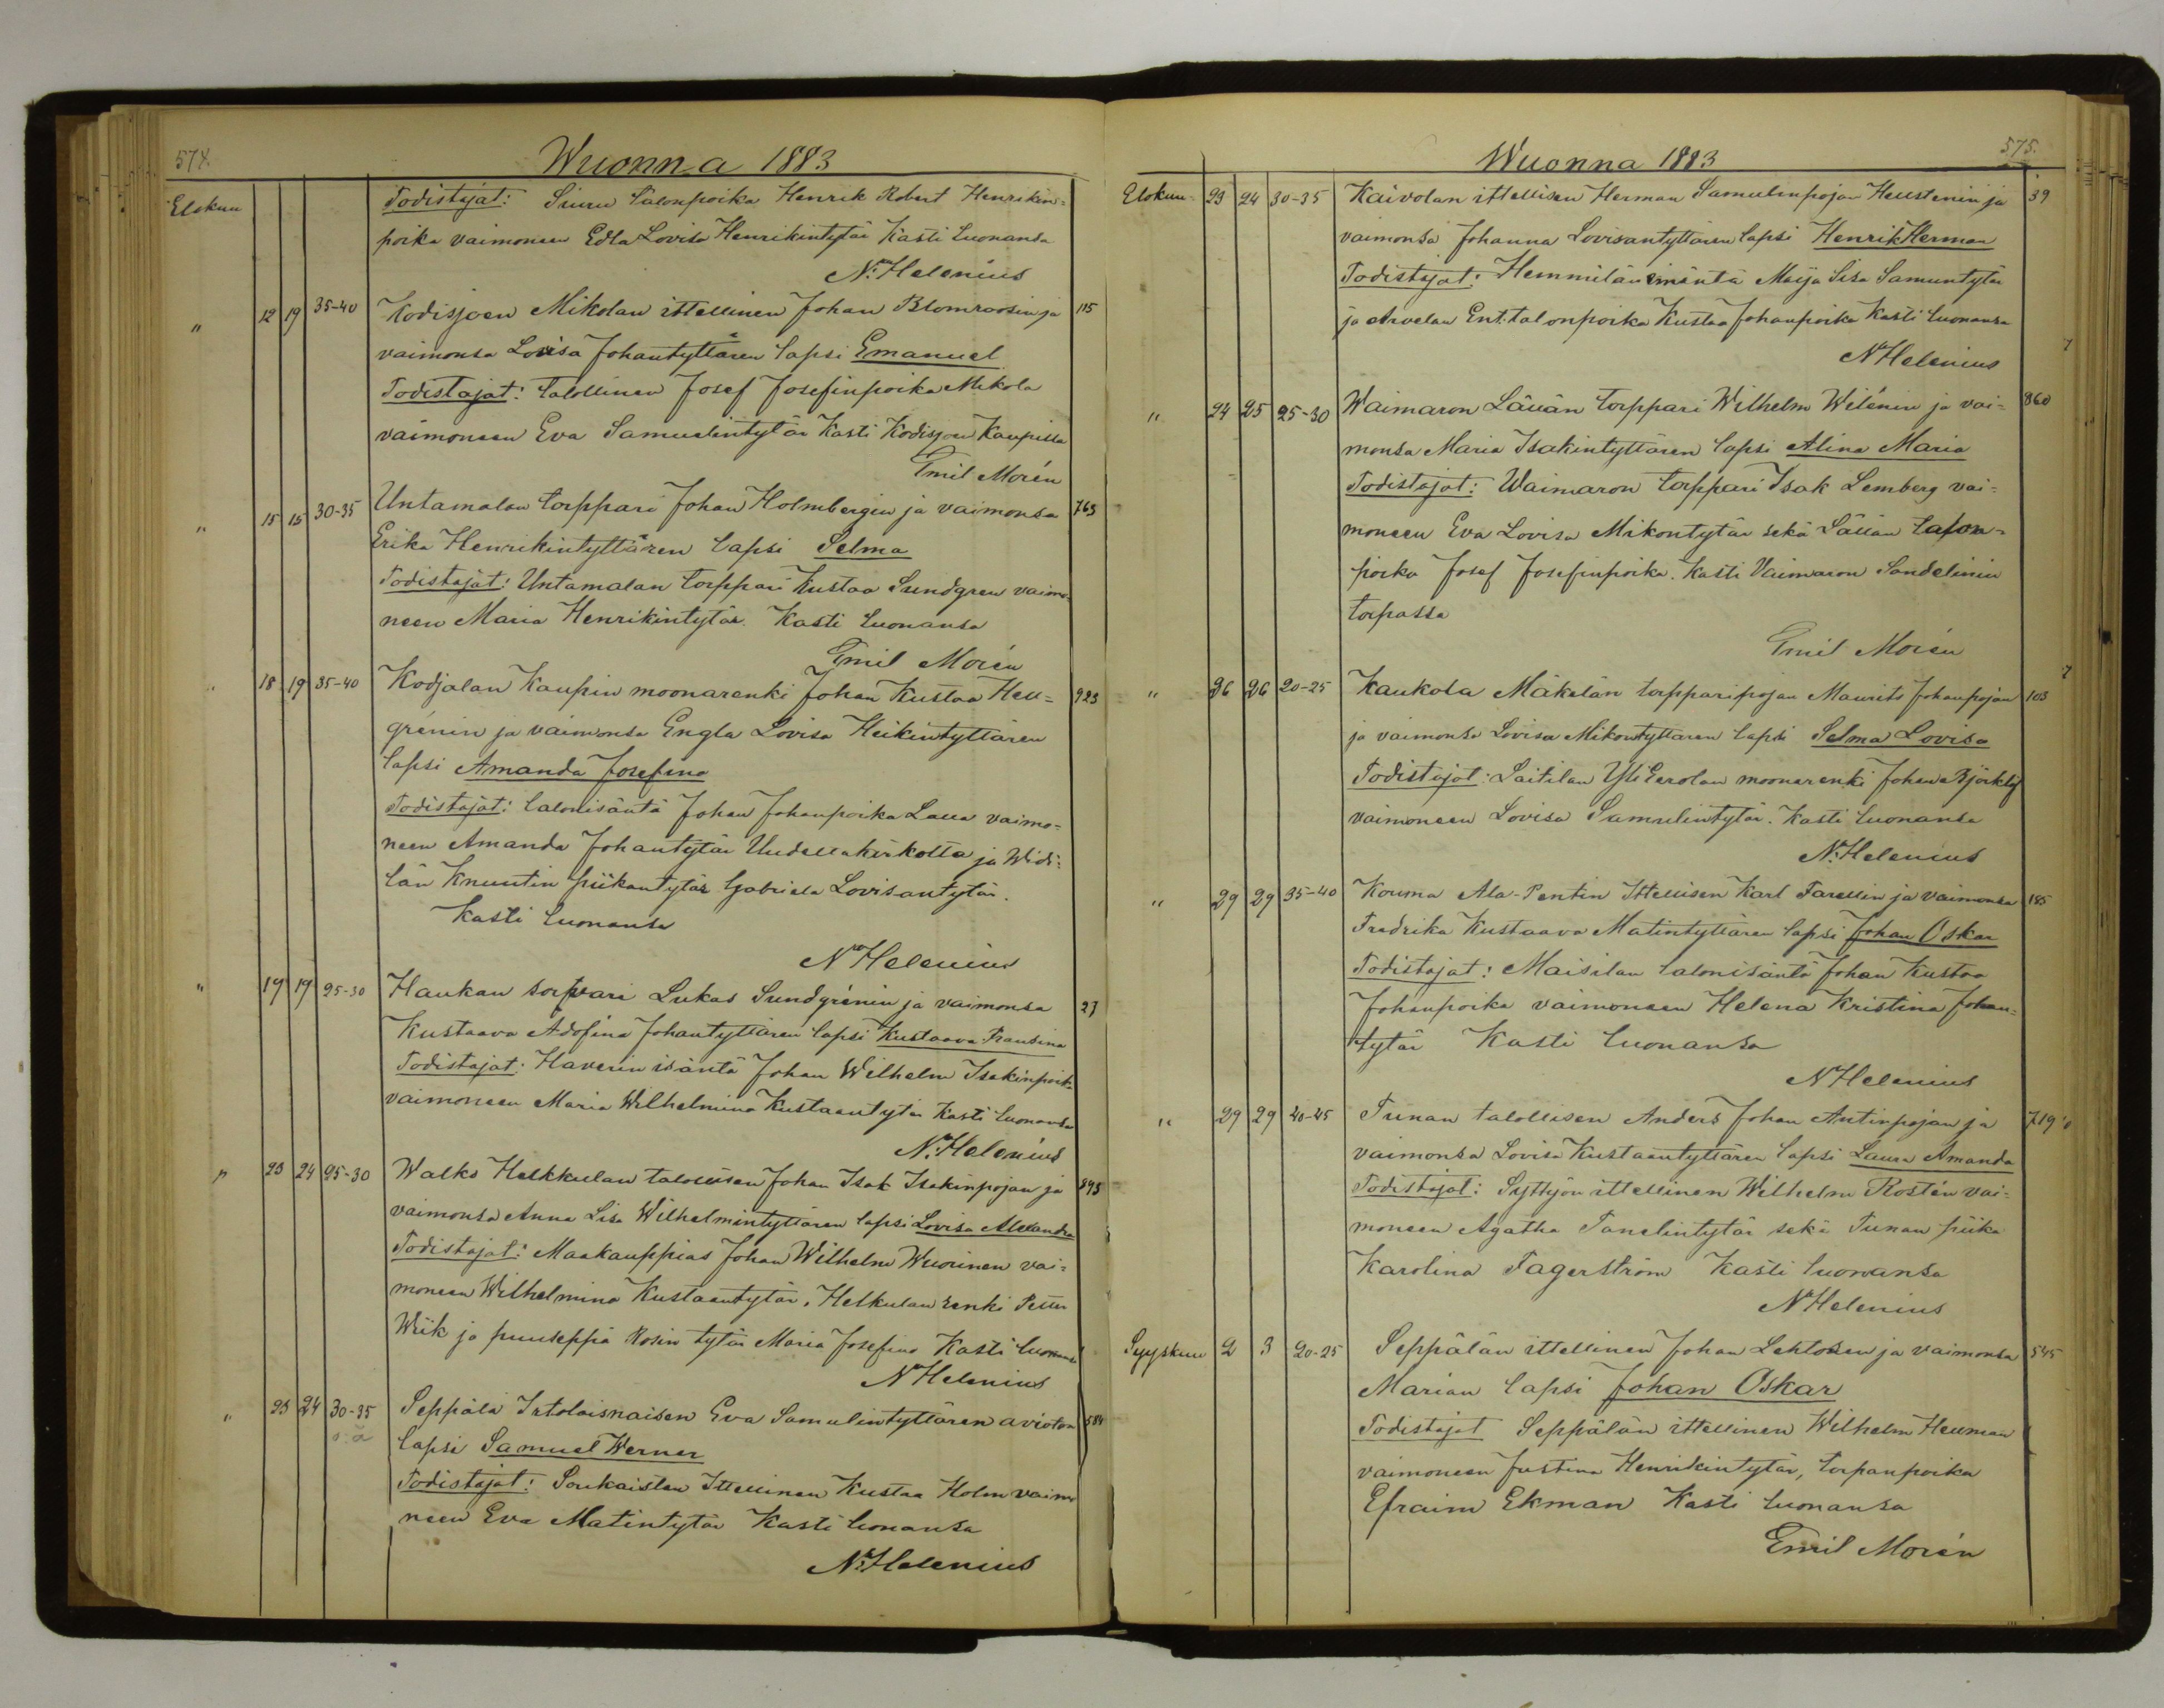 574.
Wuonna 1883
Elokuu
Todistajat: Siuru Talonpoika Henrik Robert Henrikin=
poika vaimoneen Edla Lovisa Henrikintytär Kasti luonansa
N. Helenius
" 12 19 35-40 Kodisjoen Mikolan ittellinen Johan Blomroosin ja 115
vaimonsa Lovisa Johantyttären lapsi Emanuel
Todistajat: talollinen Josef Josefinpoika Mikola
vaimoneen Eva Samuelintytär Kasti Kodisjoen Kaupissa
Emil Morén
" 15 15 30-35 Untamalan torppari Johan Holmbergin ja vaimonsa 763
Erika Henrikintyttären lapsi Selma
Todistajat: Untamalan torppari Kustaa Sundgren vaimo=
neen Maria Henrikintytär. Kasti luonansa
Emil Morén
" 18 19 35-40 Kodjalan Kaupin moonarenki Johan Kustaa Heu= 923
grénin ja vaimonsa Engla Lovisa Heikintyttären
lapsi Amanda Josefina
Todistajat: talonisäntä Johan Johanpoika Laua vaimo=
neen Amanda Johantytär Uudeltakirkolta ja Widi=
län Knuutin piikantytär Gabriela Lovisantytär.
Kasti luonansa
N Helenius
" 19 19 25-30 Haukan sorpvari Lukas Sundgrénin ja vaimonsa 27
Kustaava Adofina Johantyttären lapsi Kustaava Fransina
Todistajat: Haverin isäntä Johan Wilhelm Isakinpoik.
vaimoneen Maria Wilhelmina Kustaantytär Kasti luonansa
N. Helenius
" 23 24 25-30 Walko Helkkulan talollisen Johan Isak Isakinpojan ja 895
vaimonsa Anna Lisa Wilhelmintyttären lapsi Lovisa Alexandra
Todistajat: Maakauppias Johan Wilhelm Wuorinen vai=
moneen Wilhelmina Kustaantytär, Helkulan renki Petter
Wiik ja puuseppä Rosin tytär Maria Josefina Kasti luonansa
N Helenius
" 23 24 30-35 Seppälä Irtolaisnaisen Eva Samulintyttären avioton 584
lapsi Samuel Werner
Todistajat: Soukaisten Ittellinen Kustaa Holm vaimo
neen Eva Matintytär Kasti luonansa
N. Helenius
575.
Wuonna 1883
Elokuu 23 24 30-35 Kaivolan ittellisen Herman Samulinpojan Heustenin ja 39
vaimonsa Johanna Lovisantyttären lapsi Henrik Herman
Todistajat: Hemmilän emäntä Maija Lisa Samuntytär
ja Arvelan Ent. talonpoika Kustaa Johanpoika Kasti luonansa
N Helenius
" 24 25 25-30 Waimaron Läuän torppari Wilhelm Wilénin ja vai= 860
monsa Maria Isakintyttären lapsi Alina Maria
Todistajat: Waimaron torppari Isak Lemberg vai=
moneen Eva Lovisa Mikontytär sekä Läuän talon=
poika Josef Josefinpoika. Kasti Vaimaron Sandelinin
torpassa
Emil Morén
" 26 26 20-25 Kaukola Mäkelän torpparipojan Maurits Johanpojan 103
ja vaimonsa Lovisa Mikontyttären lapsi Selma Lovisa
Todistajat: Laitilan Yli Eerolan moonarenki Johan Björklöf
vaimoneen Lovisa Samulintytär. Kasti luonansa
N. Helenius
" 29 29 35-40 Kouma Ala-Pentin Ittellisen Karl Farellin ja vaimonsa 185
Fredrika Kustaava Matintyttären lapsi Johan Oskar
Todistajat: Maisilan talonisäntä Johan Kustaa
Johanpoika vaimoneen Helena Kristina Johan=
tytär Kasti luonansa
N Helenius
" 29 29 40-45 Tunan talollisen Anders Johan Antinpojan ja 719
vaimonsa Lovisa Kustaantyttären lapsi Laura Amanda
Todistajat: Syttyön ittellinen Wilhelm Rostén vai=
moneen Agatha Tanelintytär sekä Tunan piika
Karolina Fagerström Kasti luonansa
N Helenius
Syyskuu 2 3 20-25 Seppälän ittellinen Johan Lehtosen ja vaimonsa 545
Marian lapsi Johan Oskar
Todistajat Seppälän ittellinen Wilhelm Heuman
vaimoneen Justina Henrikintytär, torpanpoika
Efraim Ekman Kasti luonansa
Emil Morén